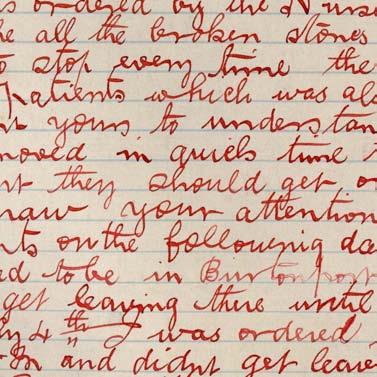 s ordered by the Nurse
e all the broken stones
o stop every time the
Patients which was als
nt yours to understan
moved in quick time
nt they should get, or
raw your attention
nts on the following da
ed to be in Burtonport
get leaving there until
ly 4th I was ordered
and didnt get leave